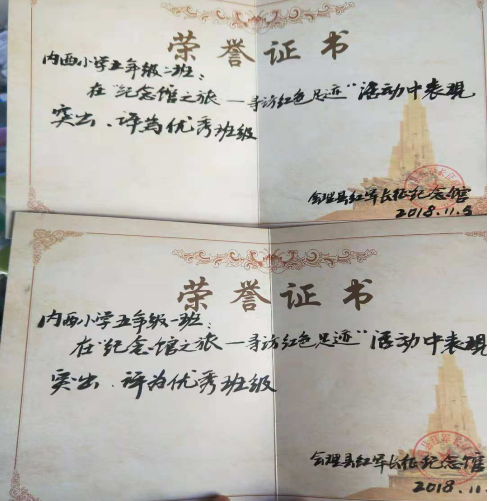 荣誉证书
内西小学五年级二班：
在“纪念馆之旅—寻访红色足迹”活动中表现
突出、评为优秀班级
会理县红军长征纪念馆
2018.11.5
荣誉证书
内西小学五年级一班：
在“纪念馆之旅—寻访红色足迹”活动中表现
突出、评为优秀班级
会理县红军长征纪念馆
2018.11.